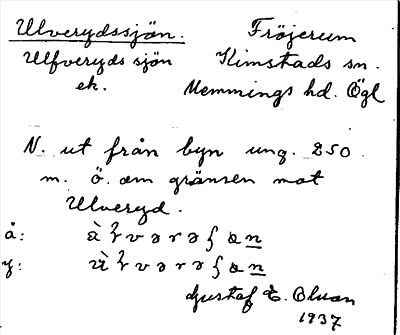 Ulverydssjön. Fröjerum
Ulfveryds sjön Kimstads sn.
ek. Memmings hd. Ögl
N. ut från byn ung. 250
m. ö. om gränsen mot
Ulveryd.
å:
y:
Gustaf E. Olsson
1937